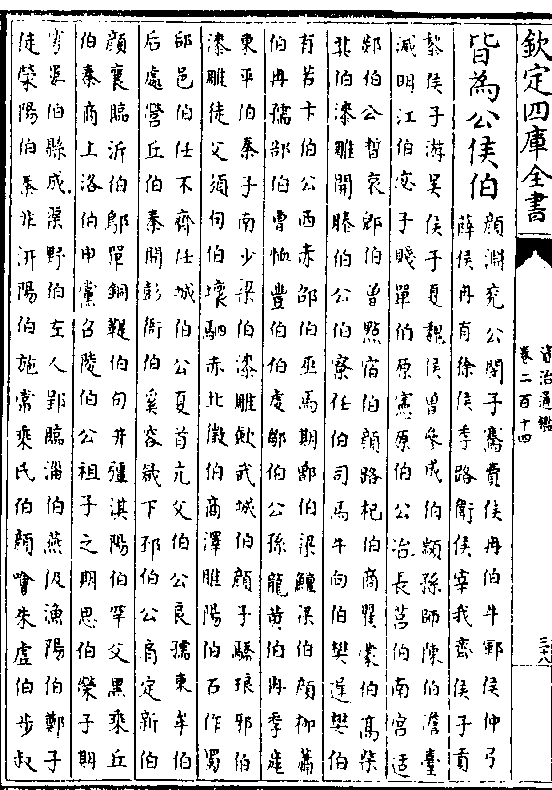 欽定四庫全書
資治通鑑
卷二百十四
三十八
皆為公侯伯
顔淵兖公閔子騫費侯冉伯牛鄆侯仲弓
薛侯冉有徐侯季路衛侯宰我齊侯子貢
黎侯子游吳侯子夏魏侯曾參成伯顓孫師陳伯澹臺
滅明江伯宓子賤單伯原憲原伯公冶長莒伯南宫适
郯伯公晳哀郳伯曾㸃宿伯顔路杞伯商瞿蒙伯髙柴
共伯漆雕開滕伯公伯寮任伯司馬牛向伯樊遲樊伯
有若卞伯公西赤邵伯巫馬期鄫伯梁鱣梁伯顔柳蕭
伯冉孺郜伯曹恤豐伯伯虔鄒伯公孫龍黄伯冉季産
東平伯秦子南少梁伯漆雕歛武城伯顔子驕琅邪伯
漆雕徒父須句伯壤駟赤北徴伯商澤睢陽伯石作蜀
郈邑伯任不齊任城伯公夏首亢父伯公良孺東牟伯
后處營丘伯秦開彭衙伯奚容蒧下邳伯公肩定新伯
顔襄臨沂伯鄡單銅鞮伯句井疆淇陽伯罕父黒乘丘
伯秦商上洛伯申黨召陵伯公祖子之期思伯榮子期
雩婁伯縣成鉅野伯左人郢臨淄伯燕伋漁陽伯鄭子
徒榮陽伯秦非汧陽伯施常乘氏伯顔噲朱虚伯步叔